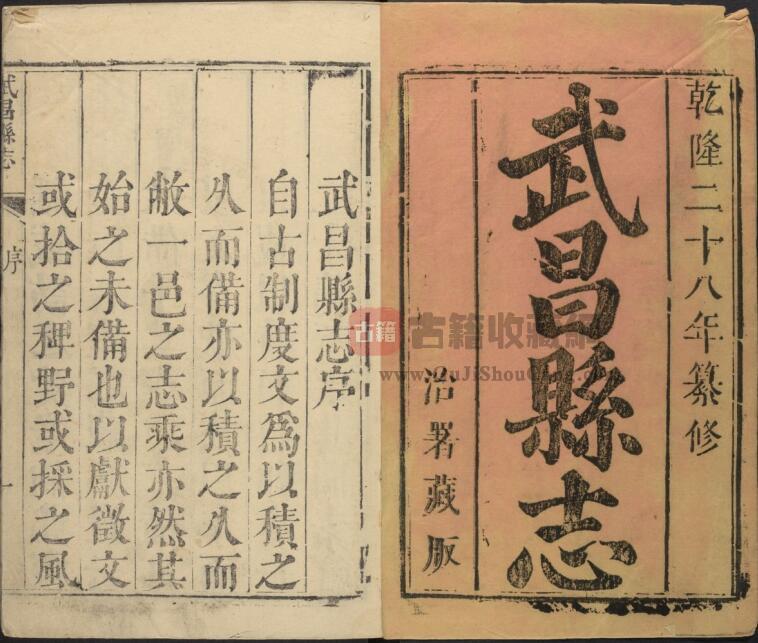 乾隆二十八年纂修
武昌縣志
治署藏版
武昌縣志序
自古制度文爲以積之
久而備亦以積之久而
敝一邑之志乘亦然其
始之未備也以獻徵文
或拾之稗野或採之風
武昌縣志
序
一
古籍
古籍收藏網